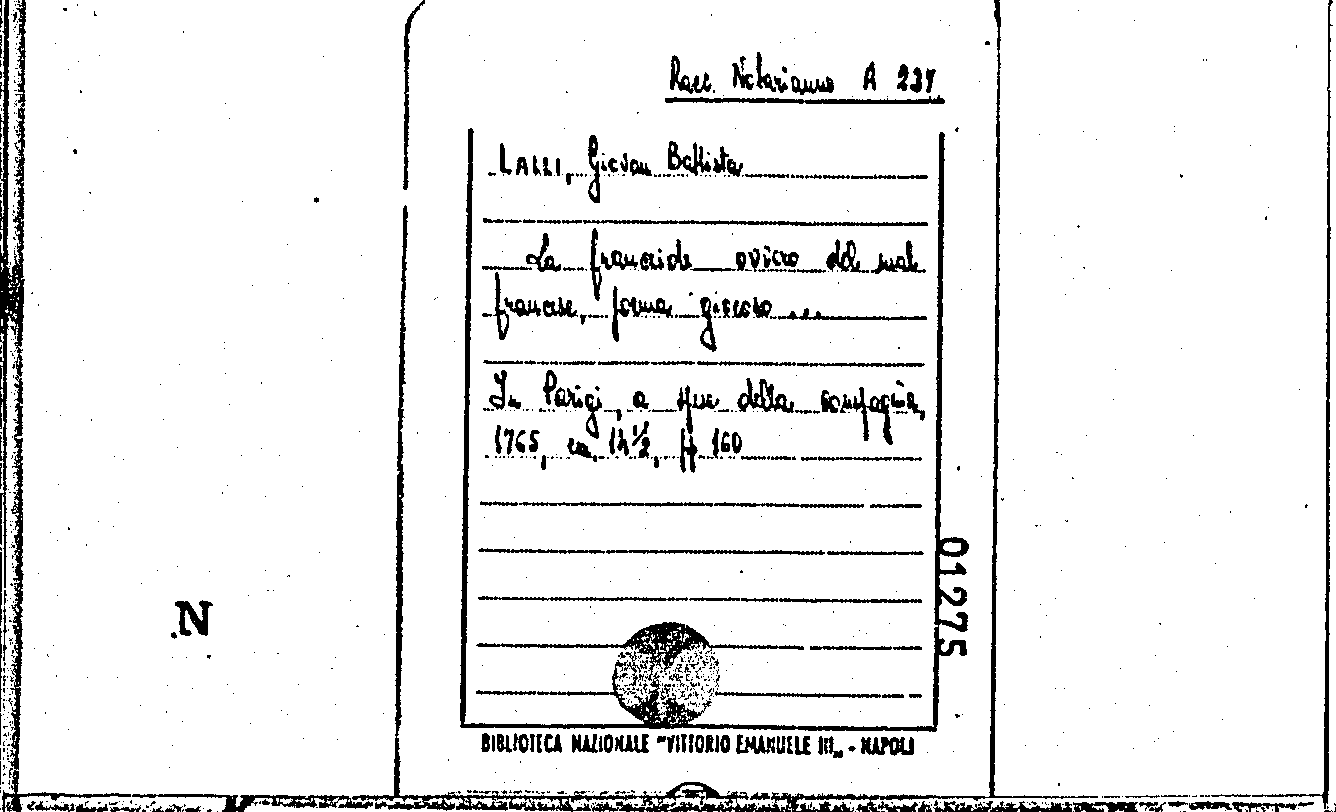 Racc. Notarianni A 237
LALLI, Giovan Battista
La franceide ovvero del mal
francese, poema giocoso ...
In Parigi, a spese della compagnia,
1765, 160
01275
N
BIBLIOTECA NAZIONALE "VITTORIO EMANUELE III" - NAPOLI